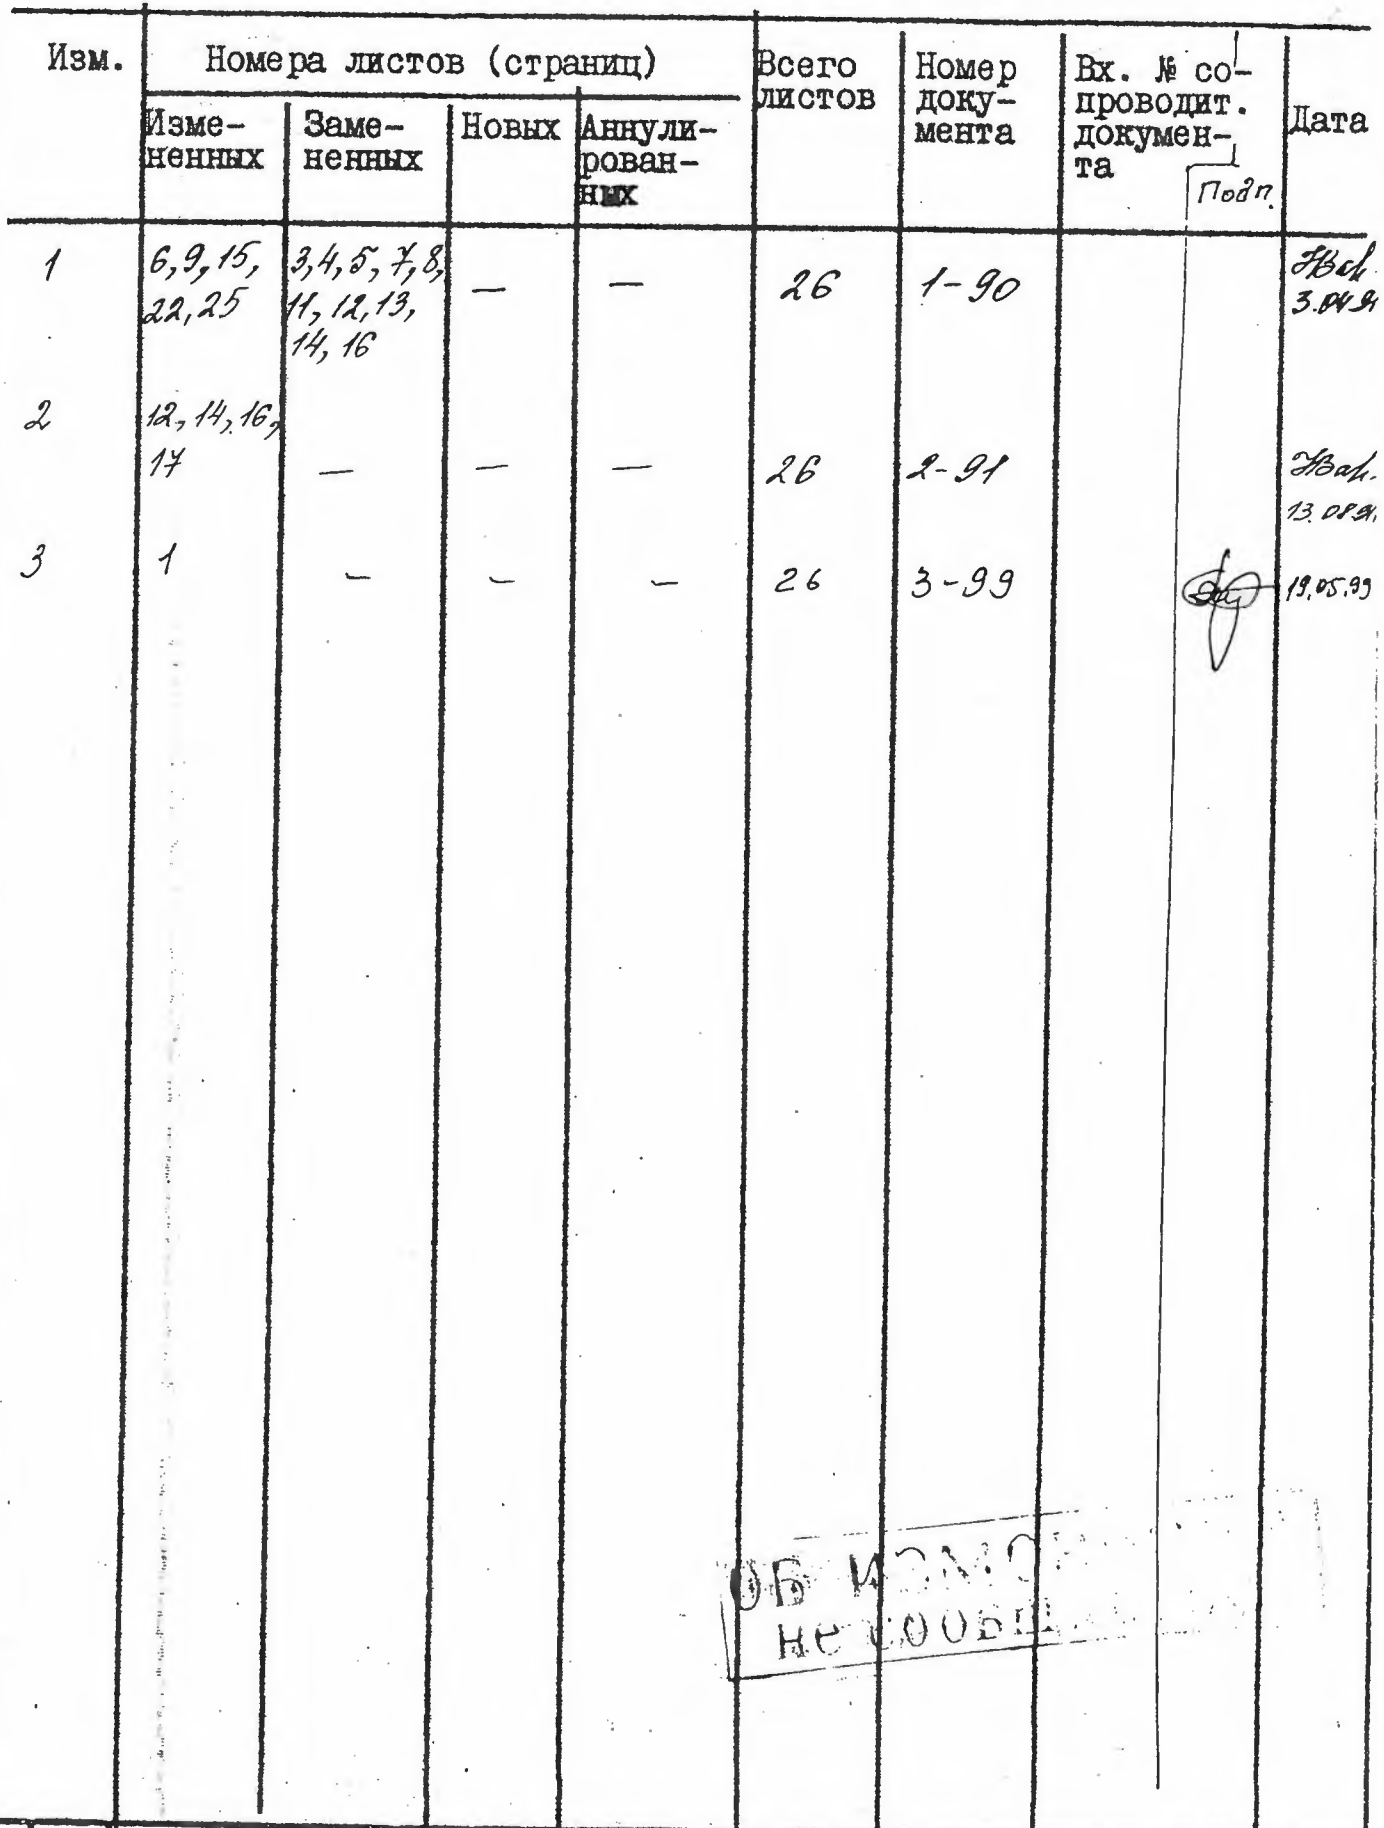 Изм. Номера листов (страниц) Всего листов Номер доку- мента Вх. № со- проводит. докумен- та Подп. Дата
Изме- ненных Заме- ненных Новых Аннули- рован- ных
1 6,9,15, 3,4,5,7,8, — — 26 1-90
22,25 11,12,13, 3.04.91
14,16
2 12,14,16,
17 — — — 26 2-91
13.08.91.
3 1 – – – 26 3-99 19.05.99
ОБ
не сообщ